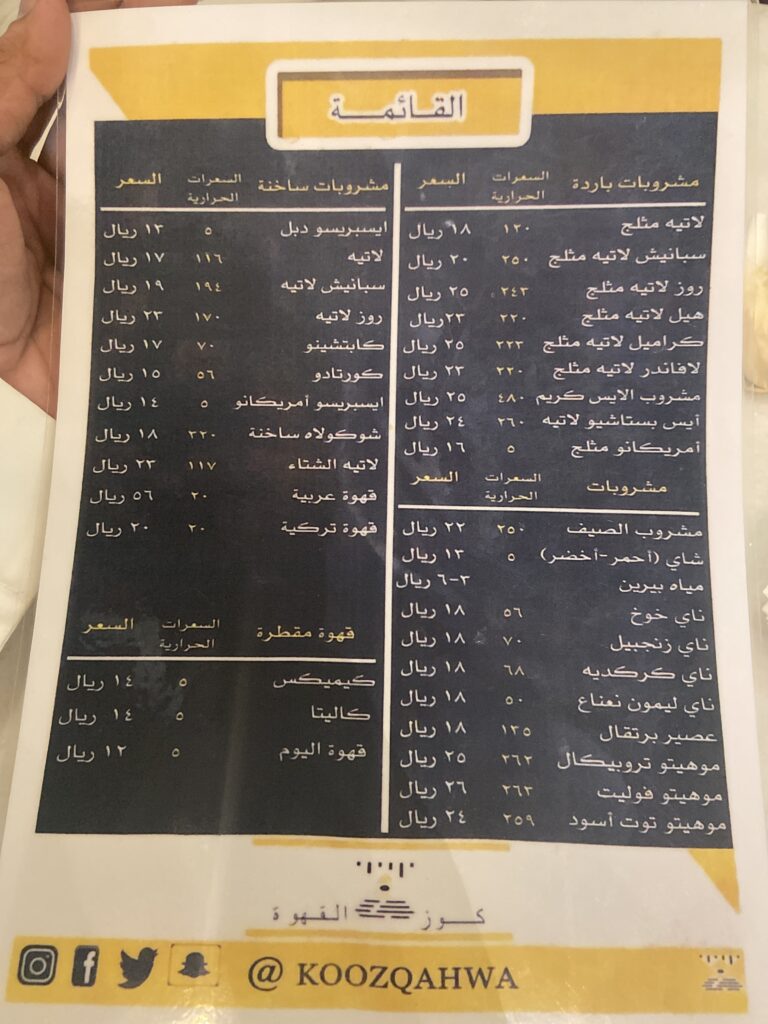 القائمة
مشروبات باردة السعرات الحرارية السعر
لاتيه مثلج ١٣٠ ١٨ ريال
سبانيش لاتيه مثلج ٢٥٠ ٢٠ ريال
روز لاتيه مثلج ٢٤٣ ٢٥ ريال
هيل لاتيه مثلج ٢٢٠ ٢٣ريال
كراميل لاتيه مثلج ٢٢٣ ٢٥ ريال
لافاندر لاتيه مثلج ٢٢٠ ٢٣ ريال
مشروب الايس كريم ٤٨٠ ٢٥ ريال
أيس بستاشيو لاتيه ٢٦٠ ٢٤ ريال
أمريكانو مثلج ٥ ١٦ ريال
مشروبات السعرات الحرارية السعر
مشروب الصيف ٢٥٠ ٢٢ ريال
شاي (أحمر-أخضر) ٥ ١٣ ريال
مياه بيرين ٣-٦ ريال
ناي خوخ ٥٦ ١٨ ريال
ناي زنجبيل ٧٠ ١٨ ريال
ناي كركديه ٦٨ ١٨ ريال
ناي ليمون نعناع ٥٠ ١٨ ريال
عصير برتقال ١٣٥ ١٨ ريال
موهيتو تروبيكال ٢٦٢ ٢٥ ريال
موهيتو فوليت ٢٦٣ ٢٦ ريال
موهيتو توت أسود ٢٥٩ ٢٤ ريال
مشروبات ساخنة السعرات الحرارية السعر
ايسبريسو دبل ٥ ١٣ ريال
لاتيه ١١٦ ١٧ ريال
سبانيش لاتيه ١٩٤ ١٩ ريال
روز لاتيه ١٧٠ ٢٣ ريال
كابتشينو ٧٠ ١٧ ريال
كورتادو ٥٦ ١٥ ريال
ايسبريسو أمريكانو ٥ ١٤ ريال
شوكولاه ساخنة ٣٢٠ ١٨ ريال
لاتيه الشتاء ١١٧ ٢٣ ريال
قهوة عربية ٢٠ ٥٦ ريال
قهوة تركية ٢٠ ٢٠ ريال
قهوة مقطرة السعرات الحرارية السعر
كيميكس ٥ ١٤ ريال
كاليتا ٥ ١٤ ريال
قهوة اليوم ٥ ١٢ ريال
كوز القهوة
@ KOOZQAHWA